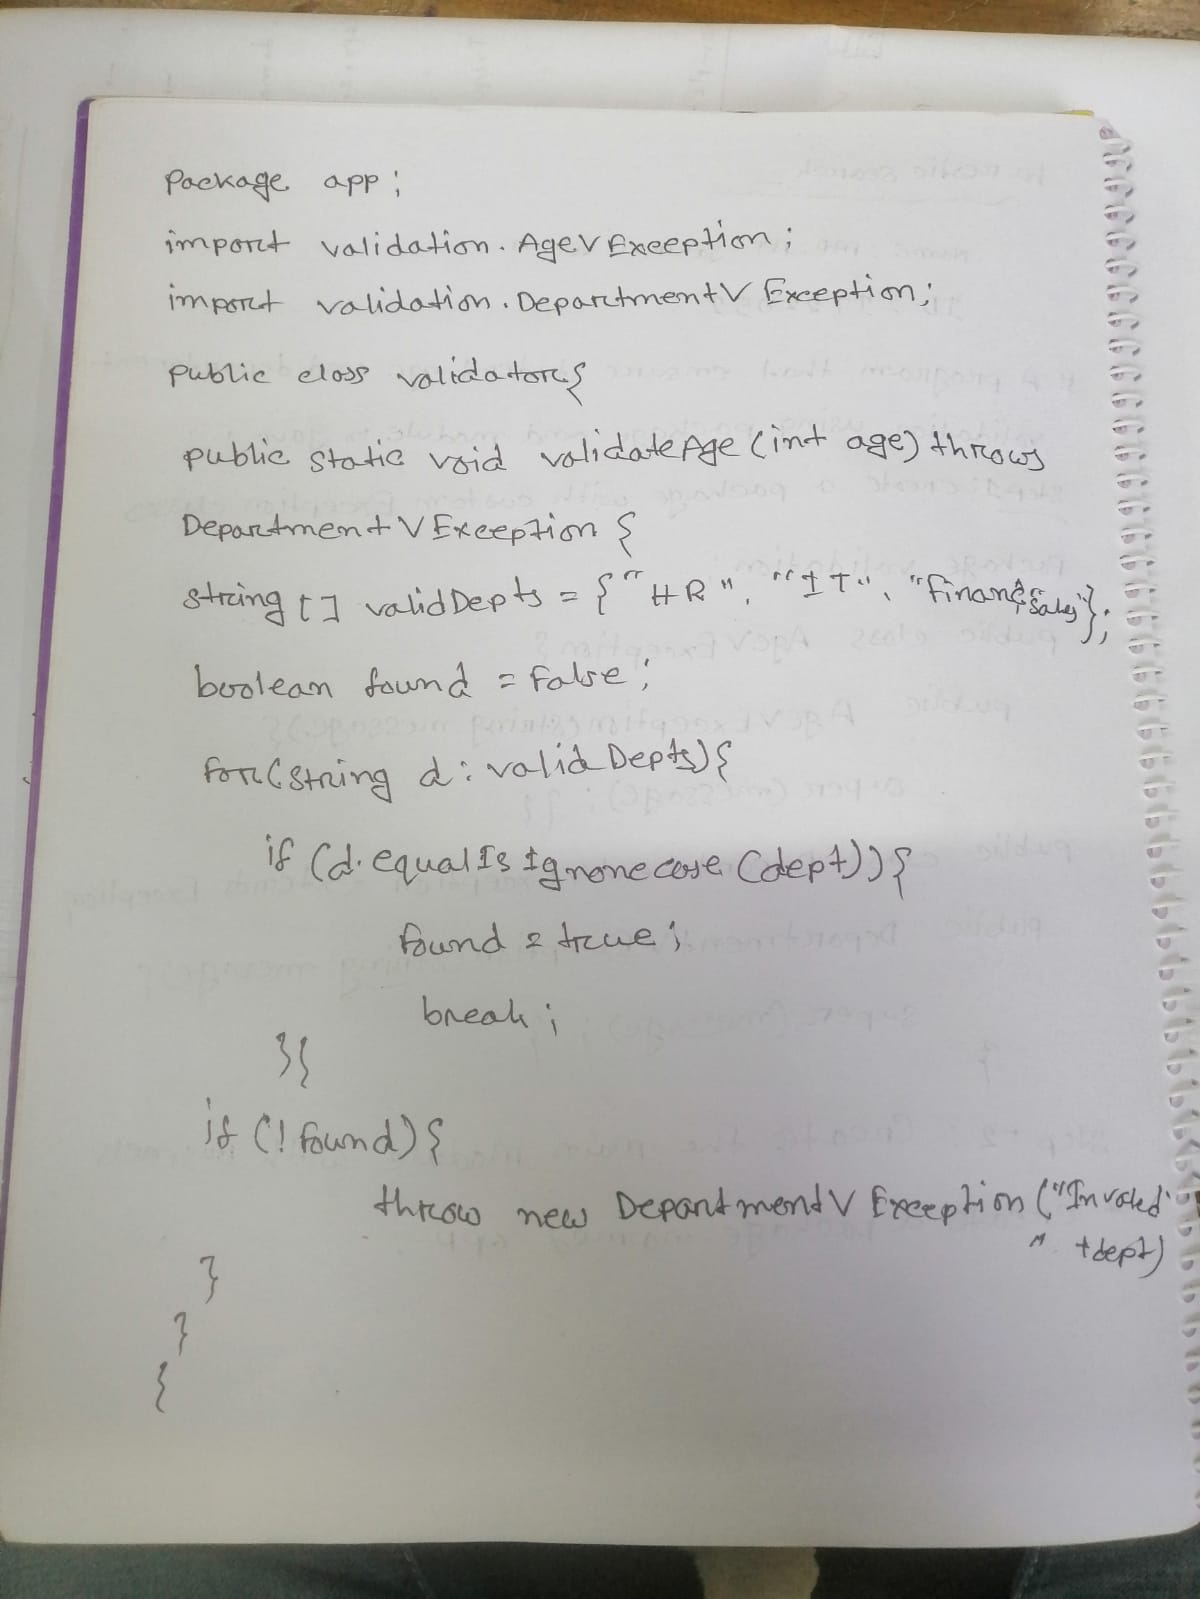 Package app;
import validation.AgeVException;
import validation.DepartmentVException;
public class validator{
public static void validateAge(int age) throws
DepartmentVException {
string[] validDepts = {"HR", "IT", "Finance", "Sales"};
boolean found = false;
for(string d: validDepts){
if (d.equalIsIgnorecase(dept)){
found = true;
break;
}{
if (!found){
throw new DepartmentVException("Invalid
" +dept)
}
}
{